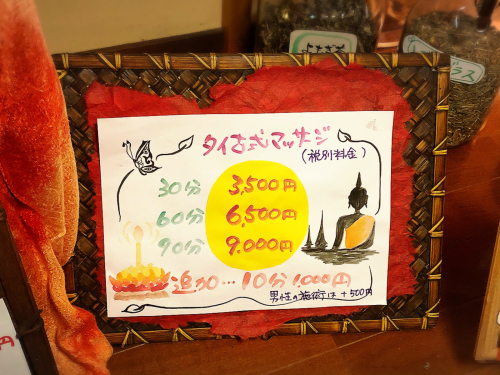 タイ古式マッサージ
(税別料金)
30分 3,500円
60分 6,500円
90分 9,000円
追加…10分1,000円
男性の施術は+500円
円